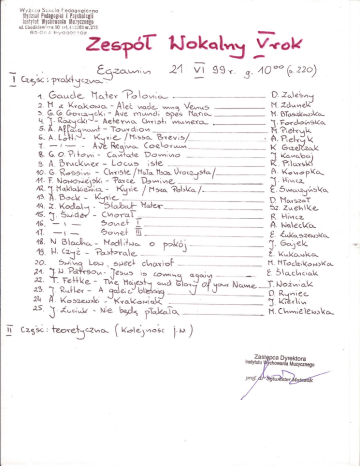 Wyższa Szkoła Pedagogiczna
Wydział Pedagogiki i Psychologii
Instytut Wychowania Muzycznego
Zespół Wokalny V rok
Egzamin 21 VI 99 r. g. 10 00 (s. 220)
I Część: praktyczna
1. Gaude Mater Polonia D. Zaleśny
2. M z Krakowa - Aleć nade mną Venus M. Zdunek
3. G. G. Gorczycki - Ave mundi spes Maria M. Błaszkowska
4. J. Różycki - Aeterna Christi munera J. Fordońska
5. A. Attaignant - Tourdion M. Pietryk
6. A. Lotti - Kyrie /Missa Brevis/ A. Pietryk
7. — " — Ave Regina Coelorum K.
8. G. O. Pitoni - Cantate Domino J. Kanabaj
9. A. Bruckner - Locus iste R. Pilarski
10. G. Rossini - Christe /Mała Msza Uroczysta/ A. Konopka
11. F. Nowowiejski - Parce Domine J. Hincz
12. J. Maklakiewicz - Kyrie /Msza Polska/ E.
13. A. Bock - Kyrie D. Marszał
14. Z. Kodaly - Stabat Mater Sz.
15. J. Świder - Chorał R. Hincz
16. — " — Sonet I A. Nalecka
17. — " — Sonet III E. Łukaszewska
18. N Blacha - Modlitwa o pokój J. Gajek
19. H. Czyż - Pastorale E. Kukawka
20. Swing Low, sweet chariot M. Młodzikowska
21. J. W Peterson - Jesus is coming again E. Ślachciak
22. T. Fettke - The Majesty and Glory of your Name T. Woźniak
23. J. Rutter - A gaelic blessing D. Ryniec
24. A. Koszewski - Krakowiak J Kierlin
25. J. - Nie będę płakała M. Chmielewska
II Część: teoretyczna (Kolejność j.w)
Zastępca Dyrektora
Instytutu Wychowania Muzycznego